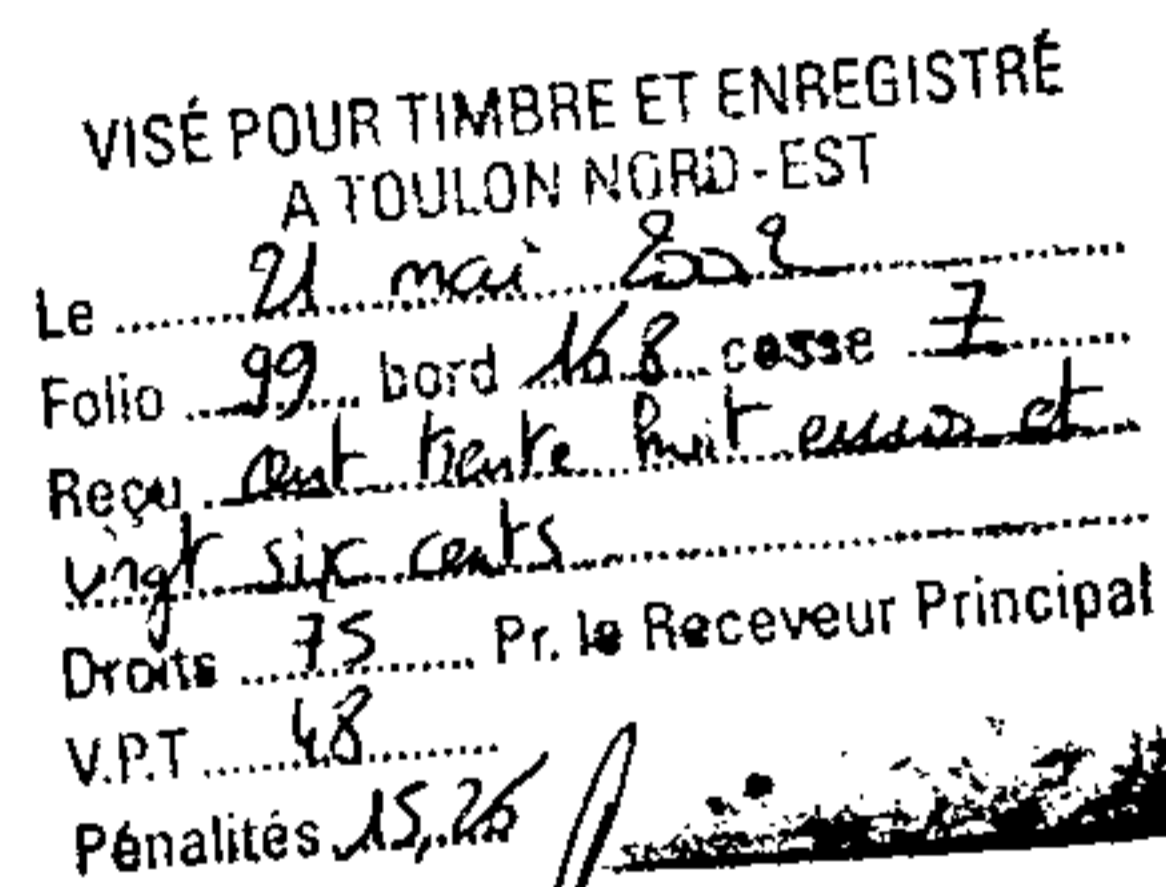 VISÉ POUR TIMBRE ET ENREGISTRÉ
A TOULON NORD - EST
Le 21 mai 2002
Folio 99 bord 168 casse 7
Reçu cent trente huit euros et
vingt six cents
Droits 75 Pr. le Receveur Principal
V.P.T 48
Pénalités 15,26